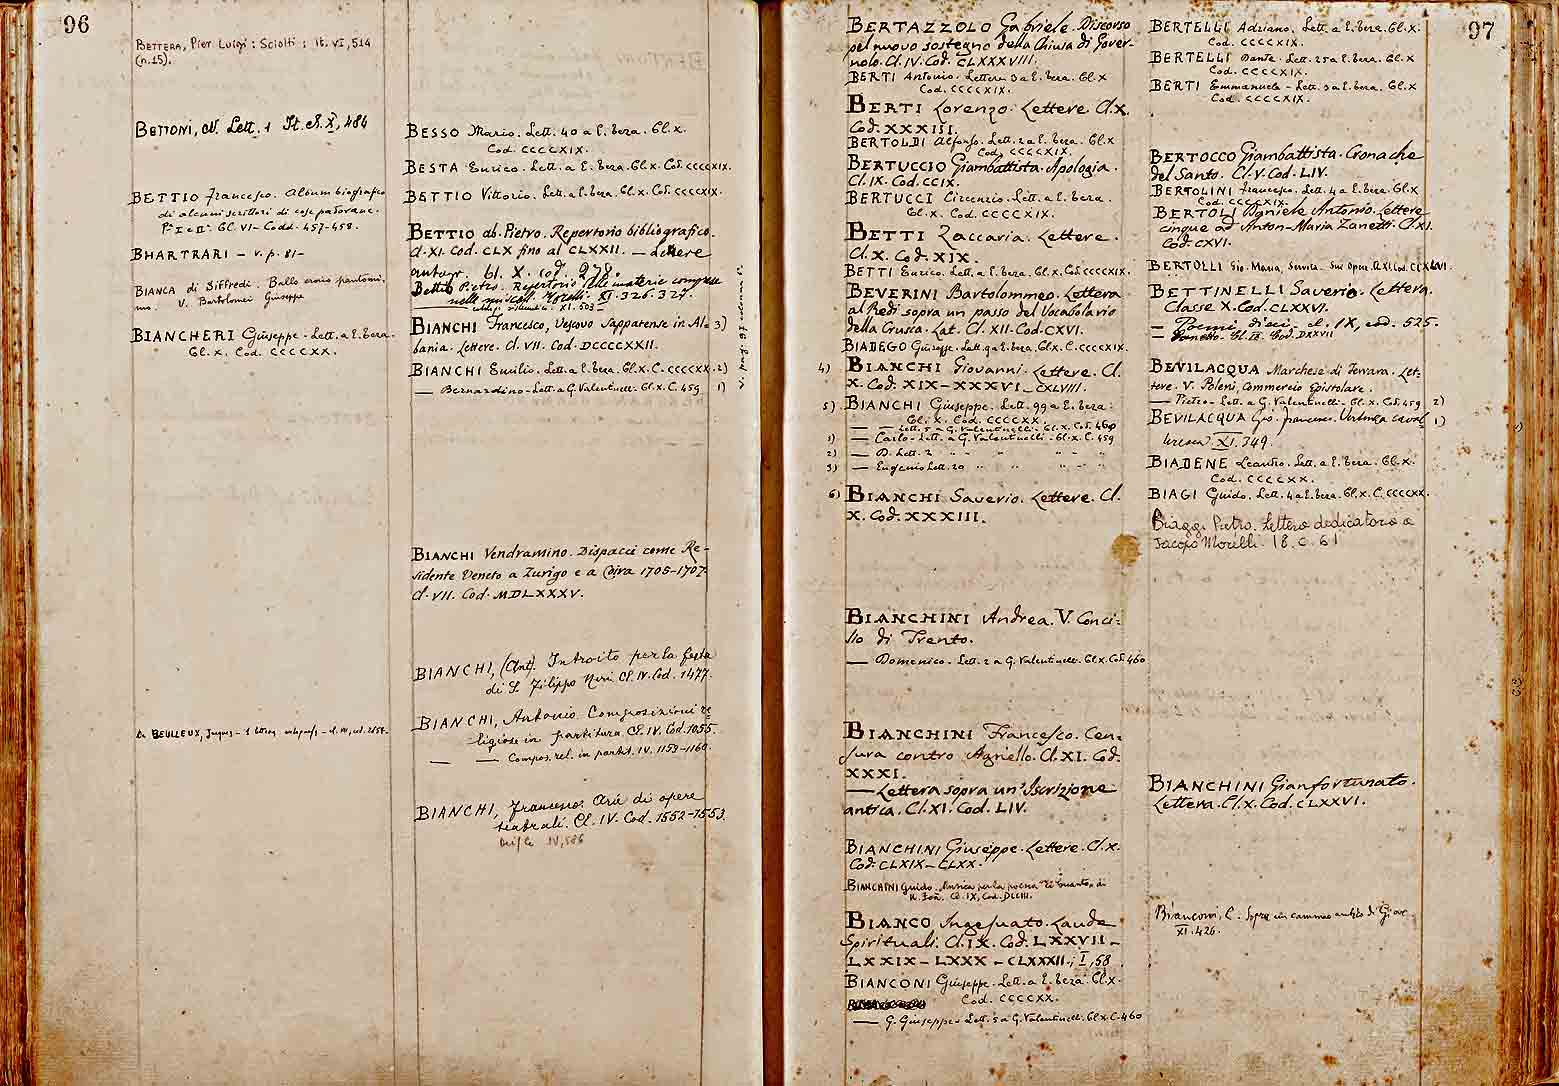 96
BETTERA, Pier Luigi: Sciolti: It. VI, 514
(n. 15).
BETTONI, N. Lett. 1 It. Cl. X, 484
BETTIO Francesco. Album biografico
di alcuni scrittori di cose padovane.
Pe. I e IIa. Cl. VI - Codd. 457-458.
BHARTRARI - v. p. 81-
BIANCA di Siffredi. Ballo eroico pantomi-
mo. V. Bartolomei Giuseppe
BIANCHERI Giuseppe - Lett. a E. Teza.
Cl. X. Cod. CCCCXX.
De BEULLEUX, Jaques - 1 lettera autografa -
BESSO Marco. Lett. 40 a E. Teza. Cl. X.
Cod. CCCCXIX.
BESTA Enrico. Lett. a E. Teza. Cl. X. Cod. CCCCXIX.
BETTIO Vittorio. Lett. a E. Teza. Cl. X. Cod. CCCCXIX.
BETTIO ab. Pietro. Repertorio bibliografico.
Cl. XI. Cod. CLX fino al CLXXII. - Lettere
autogr. Cl. X. cod. 278.
Bettio Pietro. Repertorio delle materie comprese
nelle miscell. Morelli XI. 326. 327.
XI. 503 -
BIANCHI Francesco, Vescovo Sappatense in Al- 3)
bania. Lettere. Cl. VII. Cod. DCCCCXXII.
BIANCHI Emilio. Lett. a E. Teza. Cl. X. C. CCCCXX. 2)
— Bernardino - Lett. a G. Valentinelli - Cl. X. C. 459 1)
v. pag. 97 colonna 1a
BIANCHI Vendramino. Dispacci come Re-
sidente Veneto a Zurigo e a Coira 1705-1707.
Cl. VII. Cod. MDLXXXV.
BIANCHI, (Ant). Introito per la festa
di S. Filippo Neri. Cl. IV. Cod. 1477.
BIANCHI, Antonio. Composizioni re-
ligiose in partitura. Cl. IV. Cod. 1055.
— — Compos. rel. in partit. IV. 1159-1160.
BIANCHI, Francesco: Arie di opere
teatrali. Cl. IV. Cod. 1552-1553.
IV, 586
BERTAZZOLO Gabriele. Discorso
pel nuovo sostegno della Chiusa di Gover-
nolo. Cl. IV. Cod. CLXXXVIII.
BERTI Antonio. Lettera 3 a E. Teza. Cl. X
Cod. CCCCXIX.
BERTI Lorenzo. Lettere. Cl. X.
Cod. XXXIII.
BERTOLDI Alfonso. Lett. 2 a E. Teza. Cl. X
Cod. CCCCXIX.
BERTUCCIO Giambattista. Apologia.
Cl. IX. Cod. CCIX.
BERTUCCI Lett. a E. Teza.
Cl. X. Cod. CCCCXIX.
BETTI Zaccaria. Lettere.
Cl. X. Cod. XIX.
BETTI Enrico. Lett. a E. Teza. Cl. X. Cod. CCCCXIX.
BEVERINI Bartolommeo. Lettera
al Redi sopra un passo del Vocabolario
della Crusca. Lat. Cl. XII. Cod. CXVI.
BIADEGO Giuseppe. Lett. 9 a E. Teza. Cl. X. C. CCCCXIX.
4) BIANCHI Giovanni. Lettere. Cl.
X. Cod. XIX - XXXVI - CXLVIII.
5) BIANCHI Giuseppe. Lett. 99 a E. Teza.
Cl. X. Cod. CCCCXX.
— — Lett. 5 a G. Valentinelli - Cl. X. Cod. 460
1) — Carlo - Lett. a G. Valentinelli - Cl. X. C. 459
2) — D. Lett. 2 " " " - " - "
3) — Eugenio Lett. 20 " " " " "
6) BIANCHI Saverio. Lettere. Cl.
X. Cod. XXXIII.
BIANCHINI Andrea. V. Conci-
lio di Trento.
— Domenico. Lett. 2 a G. Valentinelli. Cl. X. Cod. 460
BIANCHINI Francesco. Cen-
sura contro Agnello. Cl. XI. Cod.
XXXI.
— Lettera sopra un' Iscrizione
antica. Cl. XI. Cod. LIV.
BIANCHINI Giuseppe. Lettere. Cl. X.
Cod. CLXIX - CLXX.
BIANCHINI Guido. Musica per la poesia di
Cl. IX, Cod. DCCIII.
BIANCO Ingesuato. Laude
Spirituali. Cl. IX. Cod. LXXVII -
LXXIX - LXXX - CLXXXII.; I, 58
BIANCONI Giuseppe. Lett. a E. Teza. Cl. X.
Cod. CCCCXX.
— G. Giuseppe - Lett. 5 a G. Valentinelli. Cl. X. C. 460
97
BERTELLI Adriano. Lett. a E. Teza. Cl. X.
Cod. CCCCXIX.
BERTELLI Dante. Lett. 25 a E. Teza. Cl. X
Cod. CCCCXIX.
BERTI Emmanuele - Lett. 3 a E. Teza. Cl. X
Cod. CCCCXIX.
BERTOCCO Giambattista. Cronache
del Santo. Cl. V. Cod. LIV.
BERTOLINI Francesco. Lett. 4 a E. Teza. Cl. X
Cod. CCCCXIX.
BERTOLI Daniele Antonio. Lettere
cinque ad Anton-Maria Zanetti. Cl. XI.
Cod. CXVI.
BERTOLLI Gio. Maria, Servita. Sue Opere. Cl. XI. Cod.
BETTINELLI Saverio. Lettera.
Classe X. Cod. CLXXVI.
— Poemi dieci cl. IX, cod. 525.
— Sonetto - Cl. IX. Cod. DXXVII
BEVILACQUA Marchese di Ferrara. Let-
tere. V. Poleni, Commercio Epistolare.
— Pietro - Lett. a G. Valentinelli - Cl. X. Cod. 459 2)
BEVILACQUA Gio. Francesco. 1)
XI. 349.
BIADENE Leandro. Lett. a E. Teza. Cl. X.
Cod. CCCCXX.
BIAGI Guido. Lett. 4 a E. Teza. Cl. X. C. CCCCXX.
Biaggi Pietro. Lettera dedicatoria a
Jacopo Morelli. 18. C. 61
BIANCHINI Gianfortunato.
Lettera. Cl. X. Cod. CLXXVI.
Bianconi, C. Sopra un cammeo antico di Giove
XI. 426.